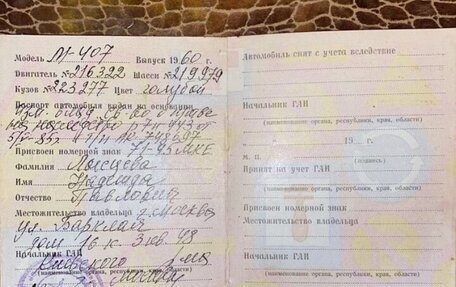 Модель М-407 Выпуск 1960 г.
Двигатель № 216322 Шасси № 219979
Кузов № 223277 Цвет голубой
Паспорт автомобиля выдан на основании
Присвоен номерной знак 71-95 МКЕ
Фамилия
Имя Надежда
Отчество Павловна
Местожительство владельца г. Москва
ул. Барклая
дом 16 к. 3 кв. 48
Начальник ГАИ Киевского р-на
(наименование органа, республики, края, области)
Автомобиль снят с учета вследствие
Начальник ГАИ
(наименование органа, республики, края, области)
19 г.
М. П.
(подпись)
Принят на учет ГАИ
(наименование органа, республики, края, области)
Присвоен номерной знак
Местожительство владельца
Начальник ГАИ
(наименование органа, республики, края, области)